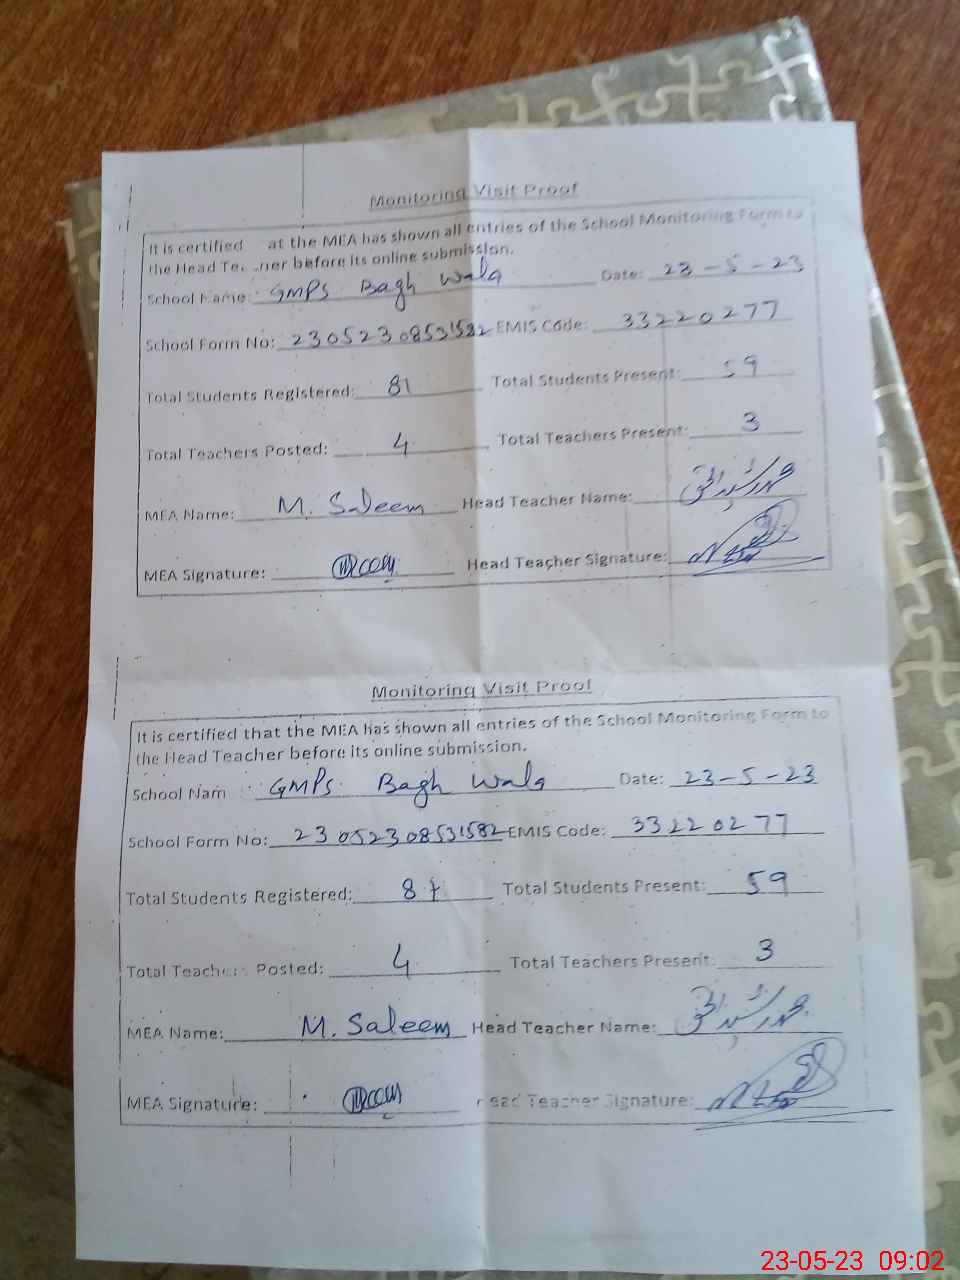 Monitoring Visit Proof
It is certified at the MEA has shown all entries of the School Monitoring Form to
the Head Te ner before its online submission.
School Name: GMPS Bagh Wala Date: 23-5-23
School Form No: 23052308531582 EMIS Code: 33220277
Total Students Registered: 81 Total Students Present: 59
Total Teachers Posted: 4 Total Teachers Present: 3
MEA Name: M. Saleem Head Teacher Name:
MEA Signature: Head Teacher Signature:
Monitoring Visit Proof
It is certified that the MEA has shown all entries of the School Monitoring Form to
the Head Teacher before its online submission.
School Nam GMPS. Bagh Wala Date: 23-5-23
School Form No: 23052308531582 EMIS Code: 33220277
Total Students Registered: 81 Total Students Present: 59
Total Teachers Posted: 4 Total Teachers Present: 3
MEA Name: M. Saleem Head Teacher Name:
MEA Signature: Head Teacher Signature:
23-05-23 09:02